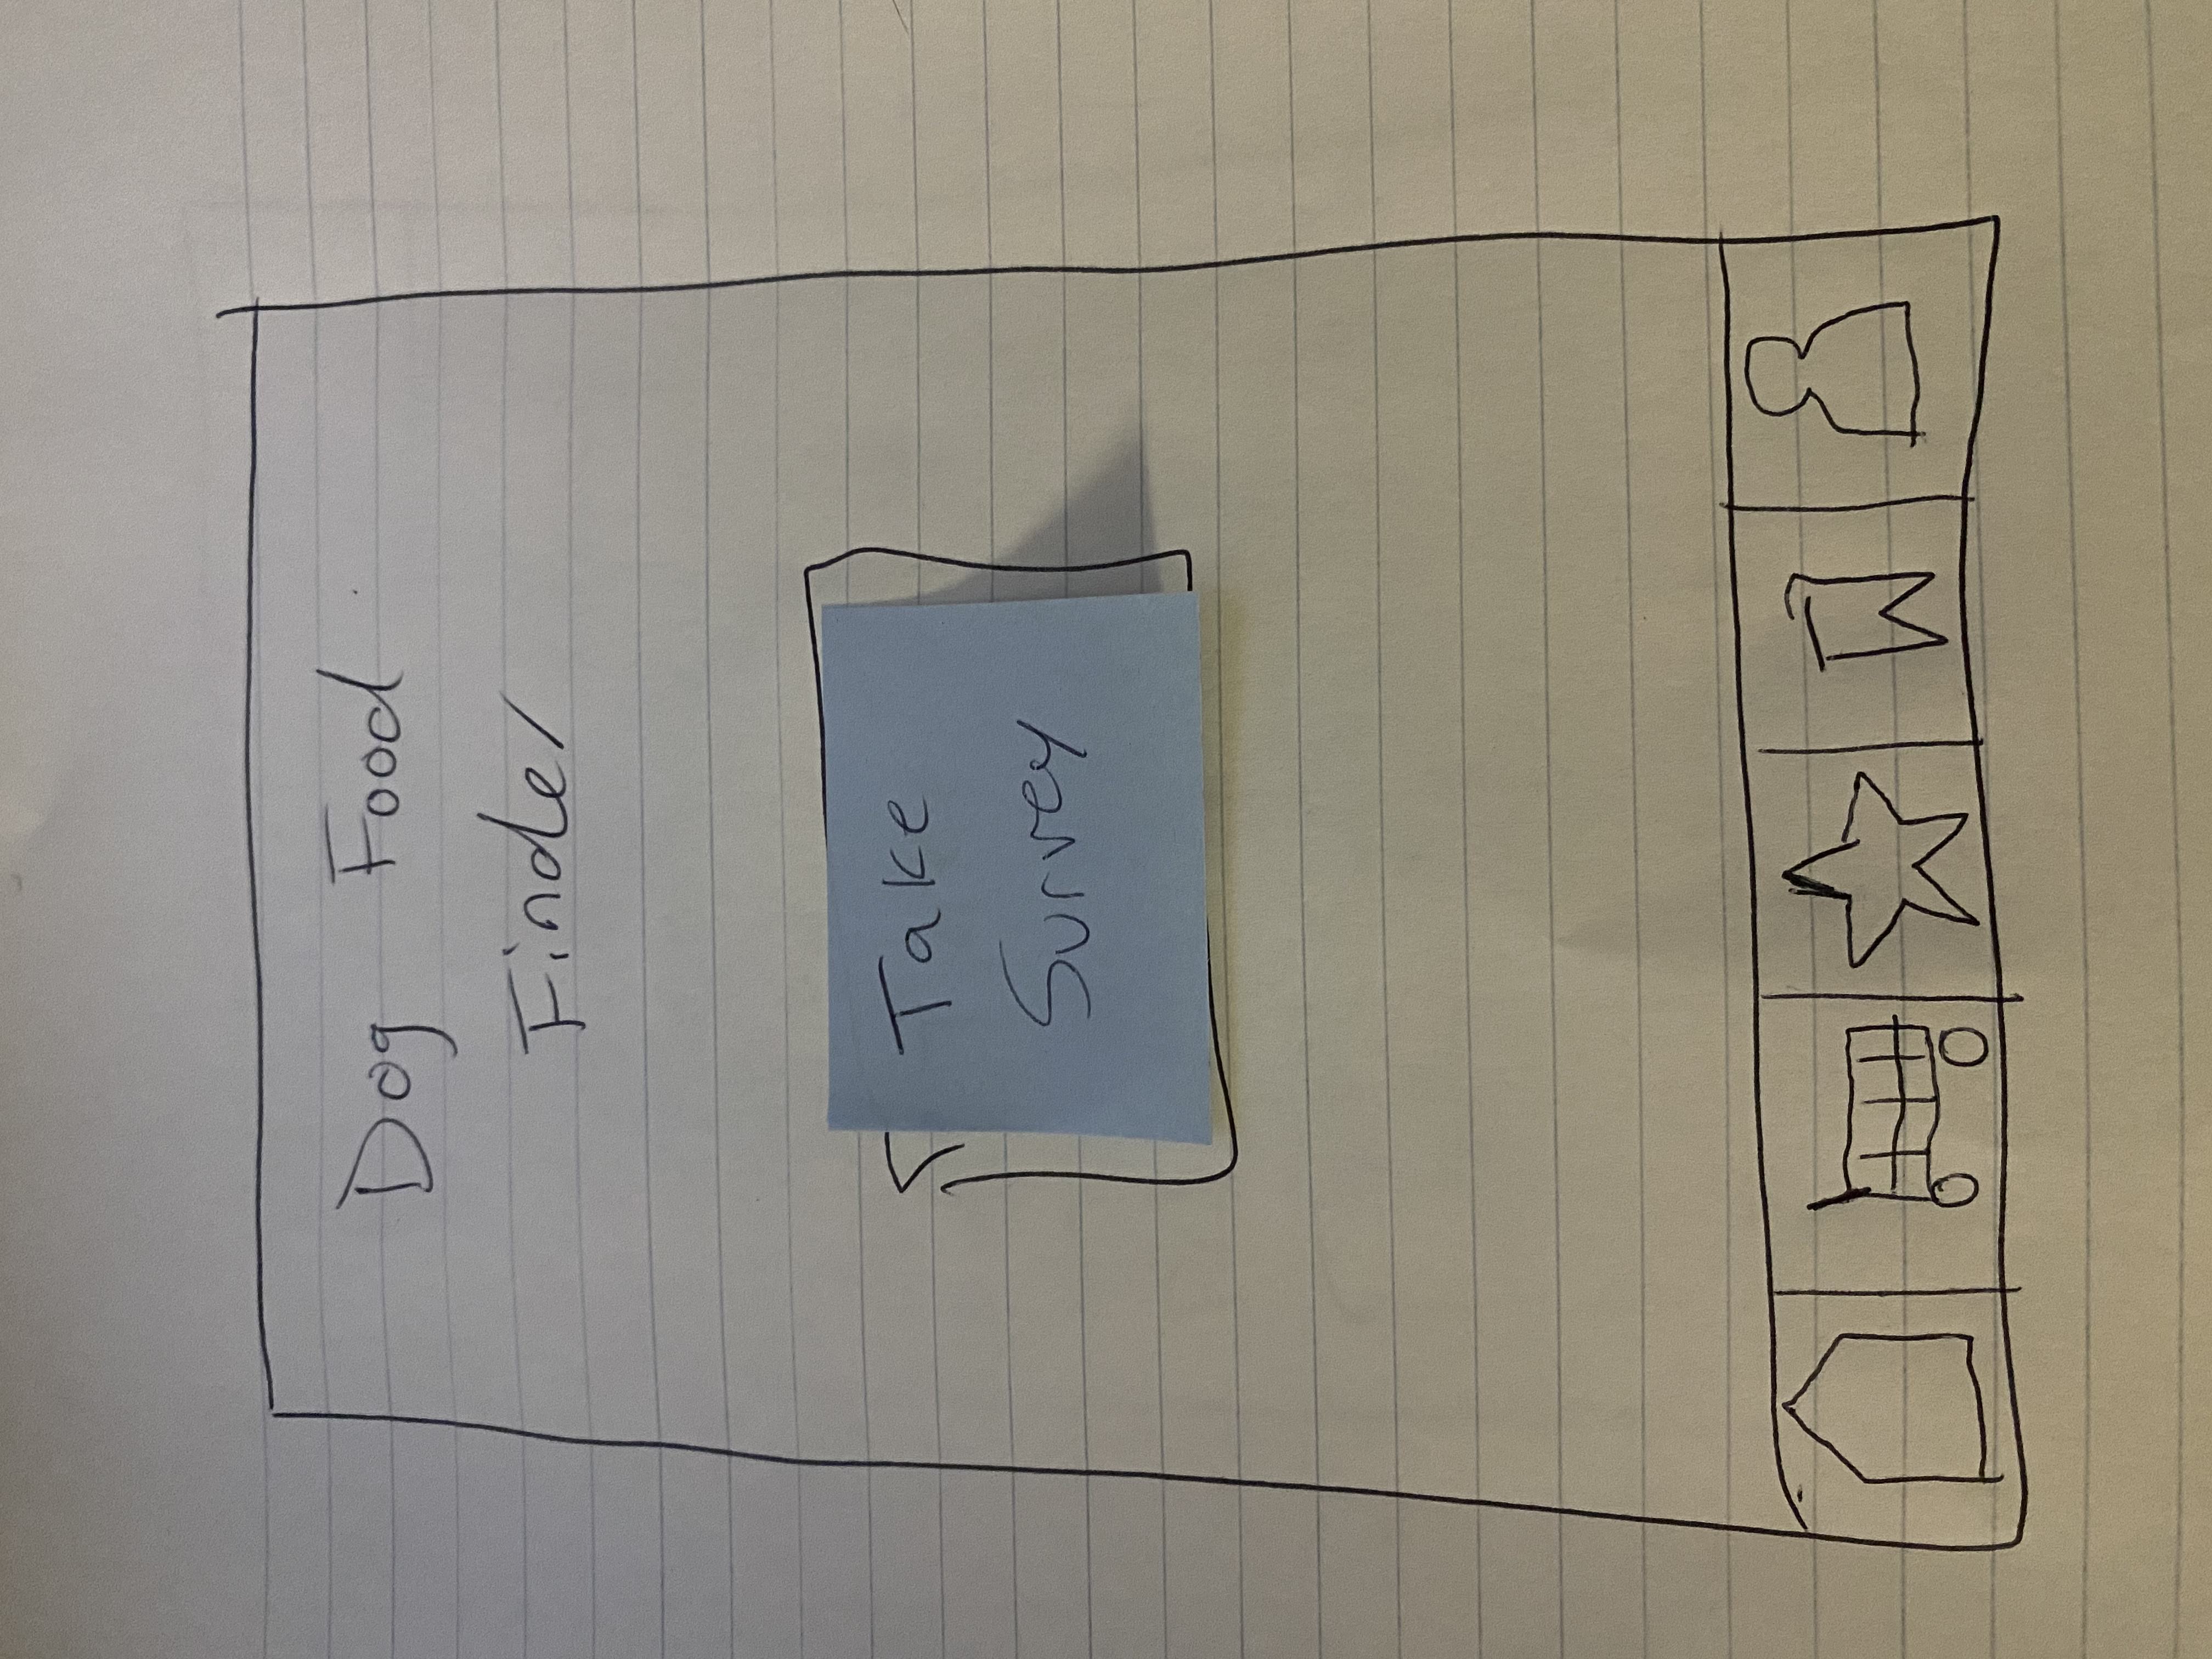 Dog Food
Finder
Take
Survey